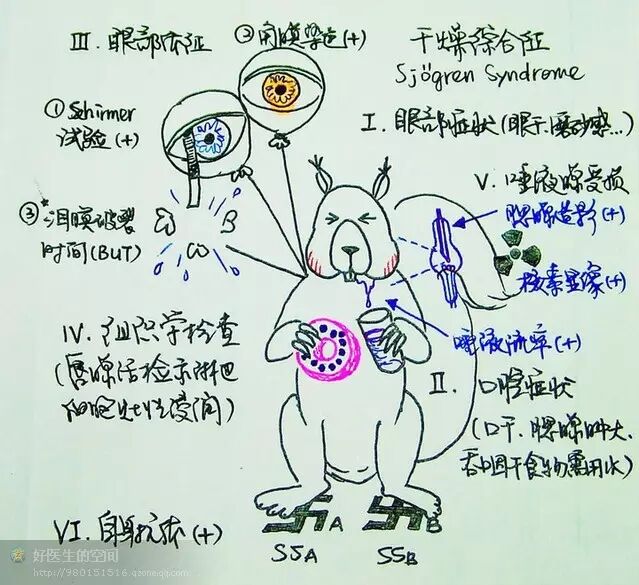 干燥综合征
Sjögren Syndrome
I. 眼部症状(眼干、磨砂感...)
II. 口腔症状
(口干、腮腺肿大、
吞咽干食物需用水)
III. 眼部体征
① Schirmer
试验(+)
② 角膜染色(+)
③ 泪膜破裂
时间(BUT)
B
IV. 组织学检查
(唇腺活检示淋巴
细胞灶性浸润)
V. 唾液腺受损
腮腺造影(+)
核素显像(+)
唾液流率(+)
VI. 自身抗体(+)
A
B
SSA
SSB
好医生的空间
http://980151516.qzone.qq.com